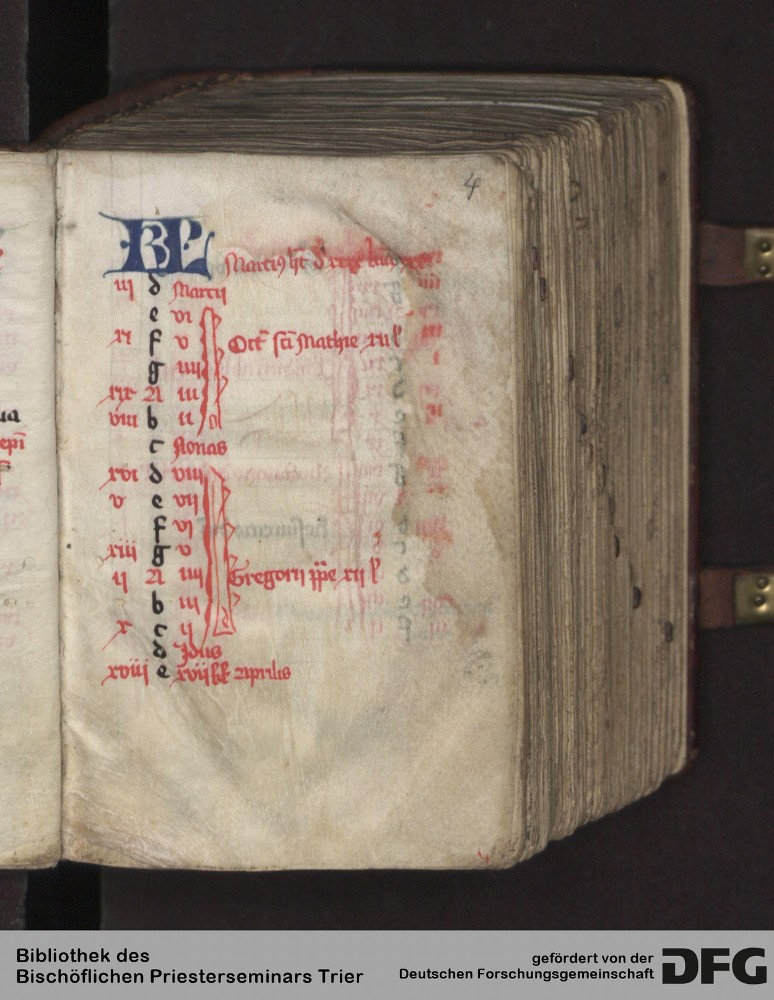 4
KL Marcii hꝫ d' xxxi
iii d Marcii
e vi
xi f v Oct' sci Mathie xii l'
g iiii
xix A iii
viii b ii
c Nonas
xvi d viii
v e vii
f vi
xiii g v
ii A iiii Gregorii ppe xii l'
b iii
x c ii
d Idus
xviii e xvii kl' Aprilis
Bibliothek des
Bischöflichen Priesterseminars Trier
gefördert von der
Deutschen Forschungsgemeinschaft DFG